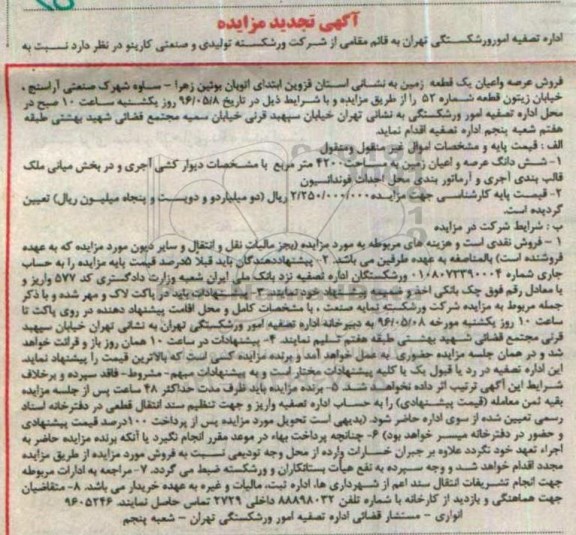 آگهی تجدید مزایده
اداره تصفیه امورورشکستگی تهران به قائم مقامی از شرکت ورشکسته تولیدی و صنعتی کارینو در نظر دارد نسبت به
فروش عرصه واعیان یک قطعه زمین به نشانی استان قزوین ابتدای اتوبان بوئین زهرا – ساوه شهرک صنعتی آراسنج ،
خیابان زیتون قطعه شماره ۵۲ را از طریق مزایده و با شرایط ذیل در تاریخ ۹۶/۰۵/۸ روز یکشنبه ساعت ۱۰ صبح در
محل اداره تصفیه امور ورشکستگی به نشانی تهران خیابان سپهبد قرنی خیابان سمیه مجتمع قضائی شهید بهشتی طبقه
هفتم شعبه پنجم اداره تصفیه اقدام نماید.
الف : قیمت پایه و مشخصات اموال غیر منقول ومنقول
۱– شش دانگ عرصه و اعیان زمین به مساحت ۴۲۰۰ متر مربع با مشخصات دیوار کشی آجری و در بخش میانی ملک
قالب بندی آجری و آرماتور بندی محل احداث فوندانسیون
۲– قیمت پایه کارشناسی جهت مزایده ۲/۲۵۰/۰۰۰/۰۰۰ ریال (دو میلیاردو و دویست و پنجاه میلیون ریال) تعیین
گردیده است.
ب : شرایط شرکت در مزایده
۱ – فروش نقدی است و هزینه های مربوطه به مورد مزایده (بجز مالیات نقل و انتقال و سایر دیون مورد مزایده که به عهده
فروشنده است) بالمناصفه به عهده طرفین می باشد. ۲– پیشنهاددهندگان باید قبلا ۵درصد قیمت پایه مزایده را به حساب
جاری شماره ۰۱۰۸۰۷۳۳۹۰۰۰۴ ورشکستگان اداره تصفیه نزد بانک ملی ایران شعبه وزارت دادگستری کد ۵۷۷ واریز و
یا معادل رقم فوق چک بانکی اخذ و ضمیمه پیشنهاد خود نمایند. ۳– پیشنهادات باید در پاکت لاک و مهر شده و با ذکر
جمله مربوط به مزایده شرکت ورشکسته نمایه صنعت ، با مشخصات کامل و محل اقامت پیشنهاد دهنده در روی پاکت تا
ساعت ۱۰ روز یکشنبه مورخه ۹۶/۰۵/۰۸ به دبیرخانه اداره تصفیه امور ورشکستگی تهران به نشانی تهران خیابان سپهبد
قرنی مجتمع قضائی شهید بهشتی طبقه هفتم تسلیم نمایند. ۴– پیشنهادات در ساعت ۱۰ همان روز باز و قرائت خواهد
شد و در همان جلسه مزایده حضوری به عمل خواهد آمد و برنده مزایده کسی است که بالاترین قیمت را پیشنهاد نمایند.
این اداره تصفیه در رد یا قبول یک یا کلیه پیشنهادات مختار است و به پیشنهادات مبهم– مشروط– فاقد سپرده و برخلاف
شرایط این آگهی ترتیب اثر داده نخواهد شد. ۵– برنده مزایده باید ظرف مدت حداکثر ۴۸ ساعت پس از جلسه مزایده
بقیه ثمن معامله (قیمت پیشنهادی) را به حساب اداره تصفیه واریز و جهت تنظیم سند انتقال قطعی در دفترخانه اسناد
رسمی تعیین شده از سوی اداره حاضر شود. (بدیهی است تحویل مورد مزایده پس از پرداخت ۱۰۰درصد قیمت پیشنهادی
و حضور در دفترخانه میسر خواهد بود) ۶– چنانچه پرداخت بهاء در موعد مقرر انجام نگیرد یا آنکه برنده مزایده حاضر به
اجراء تعهد خود نگردد علاوه بر جبران خسارات وارده از محل وجه تودیعی نسبت به فروش مورد مزایده از طریق مزایده
مجدد اقدام خواهد شد و وجه سپرده به نفع هیأت بستانکاران و ورشکسته ضبط می گردد. ۷–مراجعه به ادارات مربوطه
جهت انجام تشریفات انتقال سند اعم از شهرداری ها، اداره ثبت، مالیات و غیره به عهده خریدار می باشد. ۸– متقاضیان
جهت هماهنگی و بازدید از کارخانه با شماره تلفن ۸۸۸۹۸۰۳۲ داخلی ۲۷۲۹ تماس حاصل نمایند. ۹۶۰۵۲۴۶
انواری – مستشار قضائی اداره تصفیه امور ورشکستگی تهران – شعبه پنجم